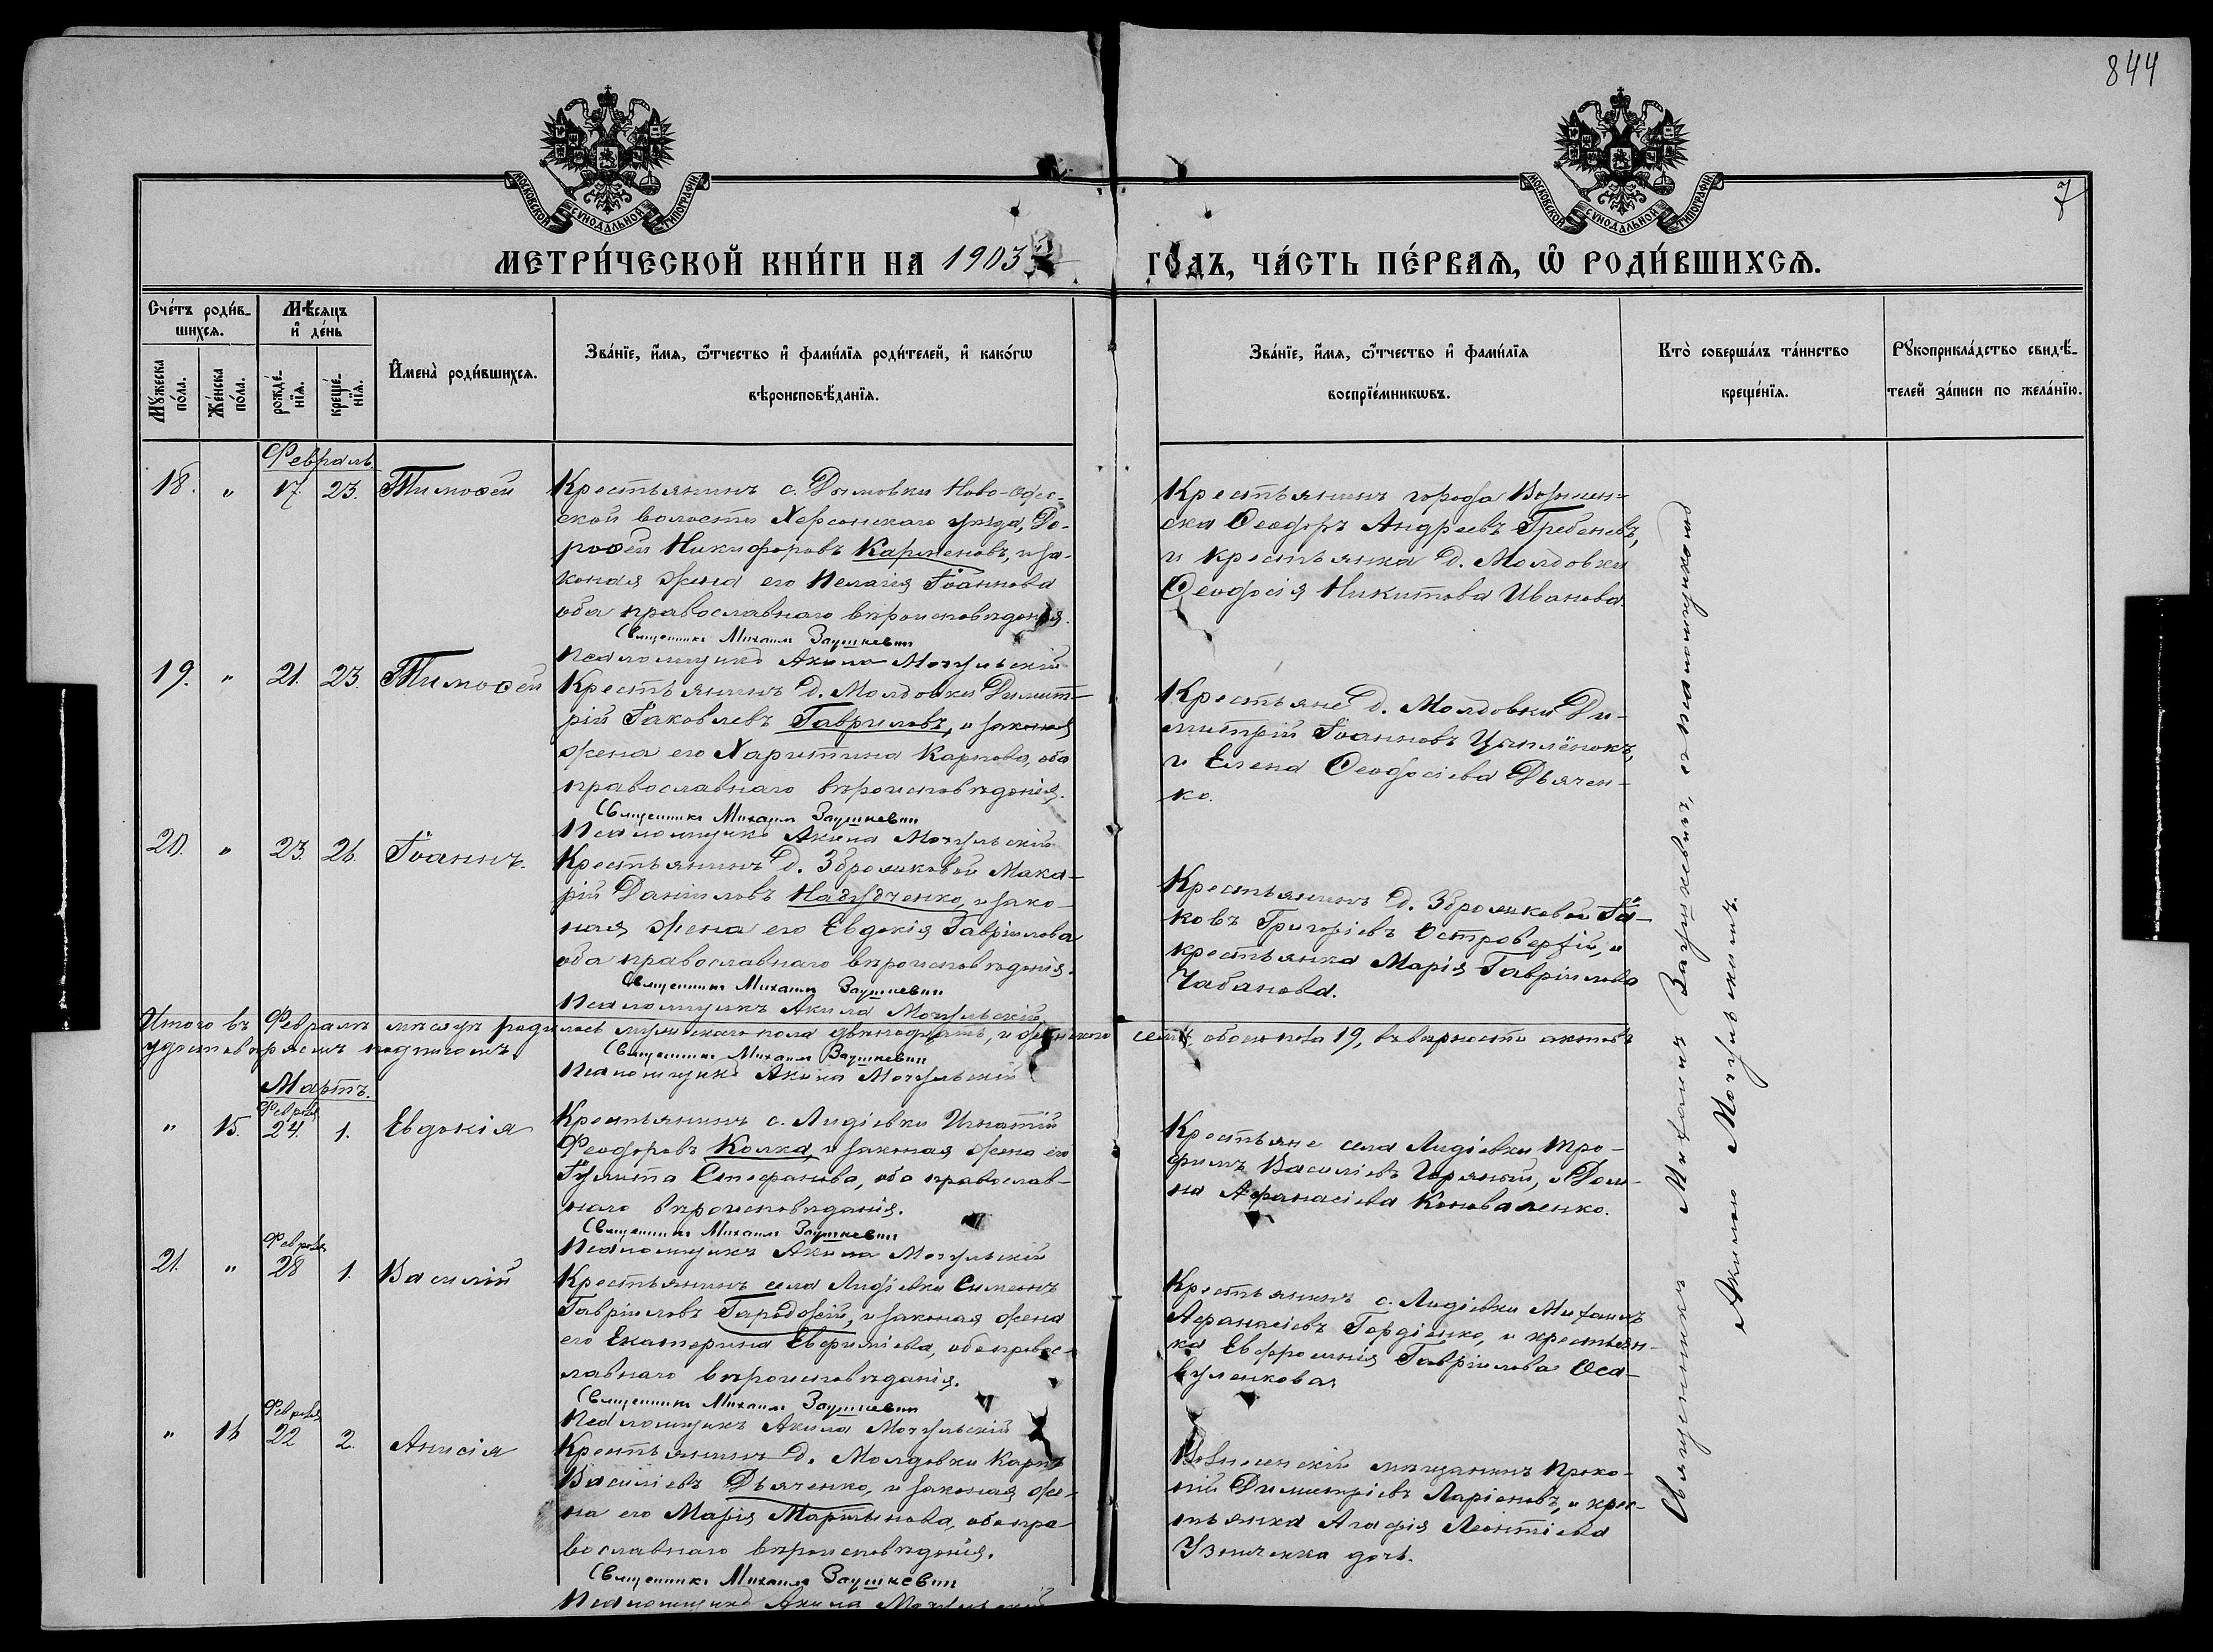 844
МОСКОВСКОЙ СѴНОДАЛЬНОЙ ТИПОГРАФІИ
МОСКОВСКОЙ СѴНОДАЛЬНОЙ ТИПОГРАФІИ
7
МЕТРИ́ЧЕСКОЙ КНИ́ГИ НА 1903 ГО́ДЪ, ЧА́СТЬ ПЕ́РВАѦ, Ѡ҆ РОДИ́ВШИХСѦ.
Сче́тъ роди́в-
шихсѧ.
Мѣ́сѧцъ
и҆ де́нь
Мꙋ́жеска
по́ла.
Же́нска
по́ла.
рожде́-
нїѧ.
креще́-
нїѧ.
И҆мена̀ роди́вшихсѧ.
Зва́нїе, и҆́мѧ, ѻ҆́тчество и҆ фами́лїѧ роди́телей, и҆ како́гѡ
вѣроисповѣ́данїѧ.
Зва́нїе, и҆́мѧ, ѻ҆́тчество и҆ фами́лїѧ
воспрїе́мникѡвъ.
Кто̀ соверша́лъ та́инство
креще́нїѧ.
Рꙋкоприкла́дство свидѣ́-
телей за́писи по жела́нїю.
Февраль
18. " 17. 23. Тимоѳей
Крестьянинъ с. Дымовки Ново-Одес-
ской волости Херсонскаго уѣзда, До-
роѳей Никифоровъ Карпеновъ, и за-
коная жена его Пелагія Іоаннова
оба православнаго вѣроисповѣданія.
Священникъ Михаилъ Заушкевич
Псаломщикъ Акила Мочульскій
Крестьянинъ города Вознесен-
ска Ѳеодоръ Андреевъ Гребеневъ,
и крестьянка д. Молдовки
Ѳеодосія Никитова Иванова.
19. " 21. 23. Тимоѳей
Крестьянинъ д. Молдовки Димит-
рій Іаковлевъ Гавриловъ, и законая
жена его Харитина Карпова, оба
православнаго вѣроисповѣданія.
Священникъ Михаилъ Заушкевич
Псаломщикъ Акила Мочульскій
Крестьяне д. Молдовки Ди-
митрій Іоанновъ Цыплёнокъ,
и Елена Ѳеодосіева Дьячен-
ко.
20. " 23. 26. Іоаннъ.
Крестьянинъ д. Зброшковой Мака-
рій Даніиловъ Надудченко, и зако-
ная жена его Евдокія Гавріилова
оба православнаго вѣроисповѣданія.
Священникъ Михаилъ Заушкевич
Псаломщикъ Акила Мочульскій
Крестьянинъ д. Зброшковой Іа-
ковъ Григоріевъ Островерхій, и
крестьянка Марія Гавріилова
Чабанова.
Итого въ Февралѣ мѣсяцѣ родилось мужескаго пола двѣнадцать, и женскаго семь, обоего пола 19, въ вѣрности актовъ
удостовѣряемъ подписомъ
Священникъ Михаилъ Заушкевич
Псаломщикъ Акила Мочульскій
Мартъ.
" 15. Февраля 24. 1. Евдокія
Крестьянинъ с. Лидіевки Игнатій
Феодоровъ Колка, и законая жена его
Іулита Стефанова, оба православ-
наго вѣроисповѣданія.
Священникъ Михаилъ Заушкевич
Псаломщикъ Акила Мочульскій
Крестьяне села Лидіевки Тро-
фимъ Василіевъ Горяный, и Дом-
на Афанасіева Коноваленко.
21. " Февраля 28 1. Василій
Крестьянинъ села Лидіевки Симеонъ
Гавріиловъ Гародзей, и законая жена
его Екатерина Евфиміева, оба правос-
лавнаго вѣроисповѣданія.
Священникъ Михаилъ Заушкевич
Псаломщикъ Акила Мочульскій
Крестьянинъ с. Лидіевки Михаилъ
Афанасіевъ Гордіенко, и крестьян-
ка Евфросинія Гавріилова Оса-
вуленковая
" 16 Февраля 22 2. Анисія
Крестьянинъ д. Молдовки Карпъ
Василіевъ Дьяченко, и законая же-
на его Марія Мартынова, оба пра-
вославнаго вѣроисповѣданія.
Священникъ Михаилъ Заушкевич
Псаломщикъ Акила Мочульскій
Вознесенскій мѣщанинъ Проко-
пій Димитріевъ Ларіоновъ, и крес-
тьянка Агафія Леонтіева
дочь.
Священникъ Михаилъ Заушкевичъ, съ псаломщикомъ
Акилою Мочульскимъ.